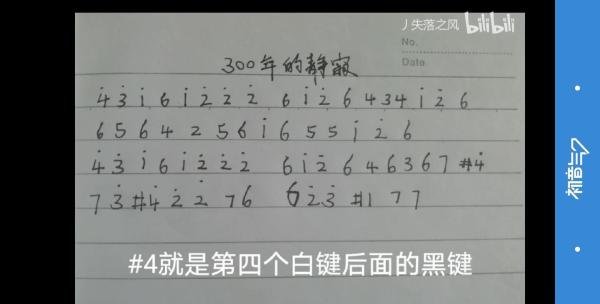 丿失落之风 bilibili
No.
Date.
300年的静寂
4̇ 3̇ 1̇ 6 1̇ 2̇ 2̇ 2̇ 6 1̇ 2̇ 6 4 3 4 1̇ 2̇ 6
6 5 6 4 2 5 6 1̇ 6 5 5 1̇ 2̇ 6
4̇ 3̇ 1̇ 6 1̇ 2̇ 2̇ 2̇ 6 1̇ 2̇ 6 4 6 3 6 7 #4̇
7 3̇ #4̇ 2̇ 2̇ 7 6 6 2̇ 3̇ #1 7 7
#4就是第四个白键后面的黑键